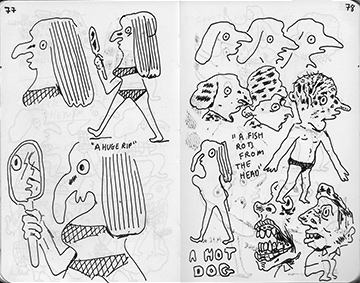 77
"A HUGE RIP"
78
"A FISH
ROTS
FROM
THE
HEAD"
A HOT
DOG